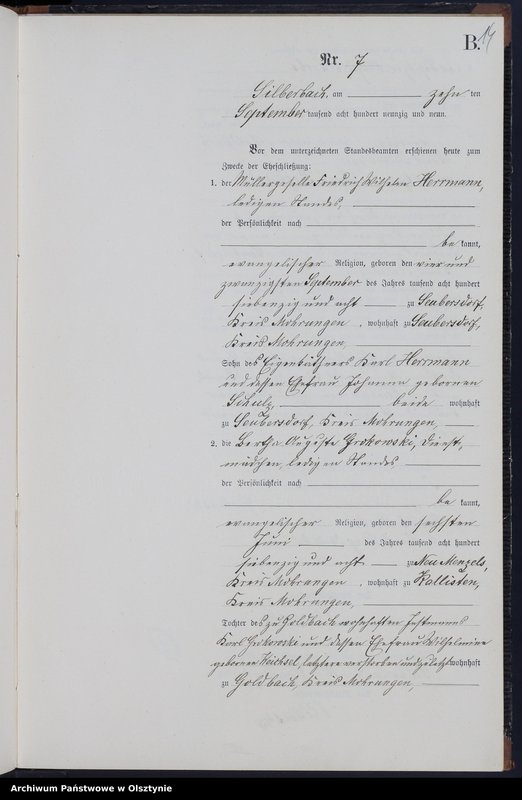 B. 14
Nr. 7
Silberbach, am zehn ten
September tausend acht hundert neunzig und neun.
Vor dem unterzeichneten Standesbeamten erschienen heute zum
Zwecke der Eheschließung:
1. der Müllergeselle Friedrich Wilhelm Herrmann,
ledigen Standes,
der Persönlichkeit nach
be kannt,
evangelischer Religion, geboren den vier und
zwanzigsten September des Jahres tausend acht hundert
siebenzig und acht zu Seubersdorf,
Kreis Mohrungen, wohnhaft zu Seubersdorf,
Kreis Mohrungen,
Sohn des Eigenthümers Karl Herrmann
und dessen Ehefrau Johanna geborenen
Schulz, beide wohnhaft
zu Seubersdorf, Kreis Mohrungen,
2. die Bertha Auguste Grokowski, Dienst,
mädchen, ledigen Standes
der Persönlichkeit nach
be kannt,
evangelischer Religion, geboren den sechsten
Juni des Jahres tausend acht hundert
siebenzig und acht zu Neu Menzels,
Kreis Mohrungen, wohnhaft zu Kallisten,
Kreis Mohrungen,
Tochter des zu Goldbach wohnhaften Instmanns
Karl Grokowski und dessen Ehefrau Wilhelmine
geborenen Weichsel, letztere verstorben und zuletzt wohnhaft
zu Goldbach, Kreis Mohrungen,
Archiwum Państwowe w Olsztynie